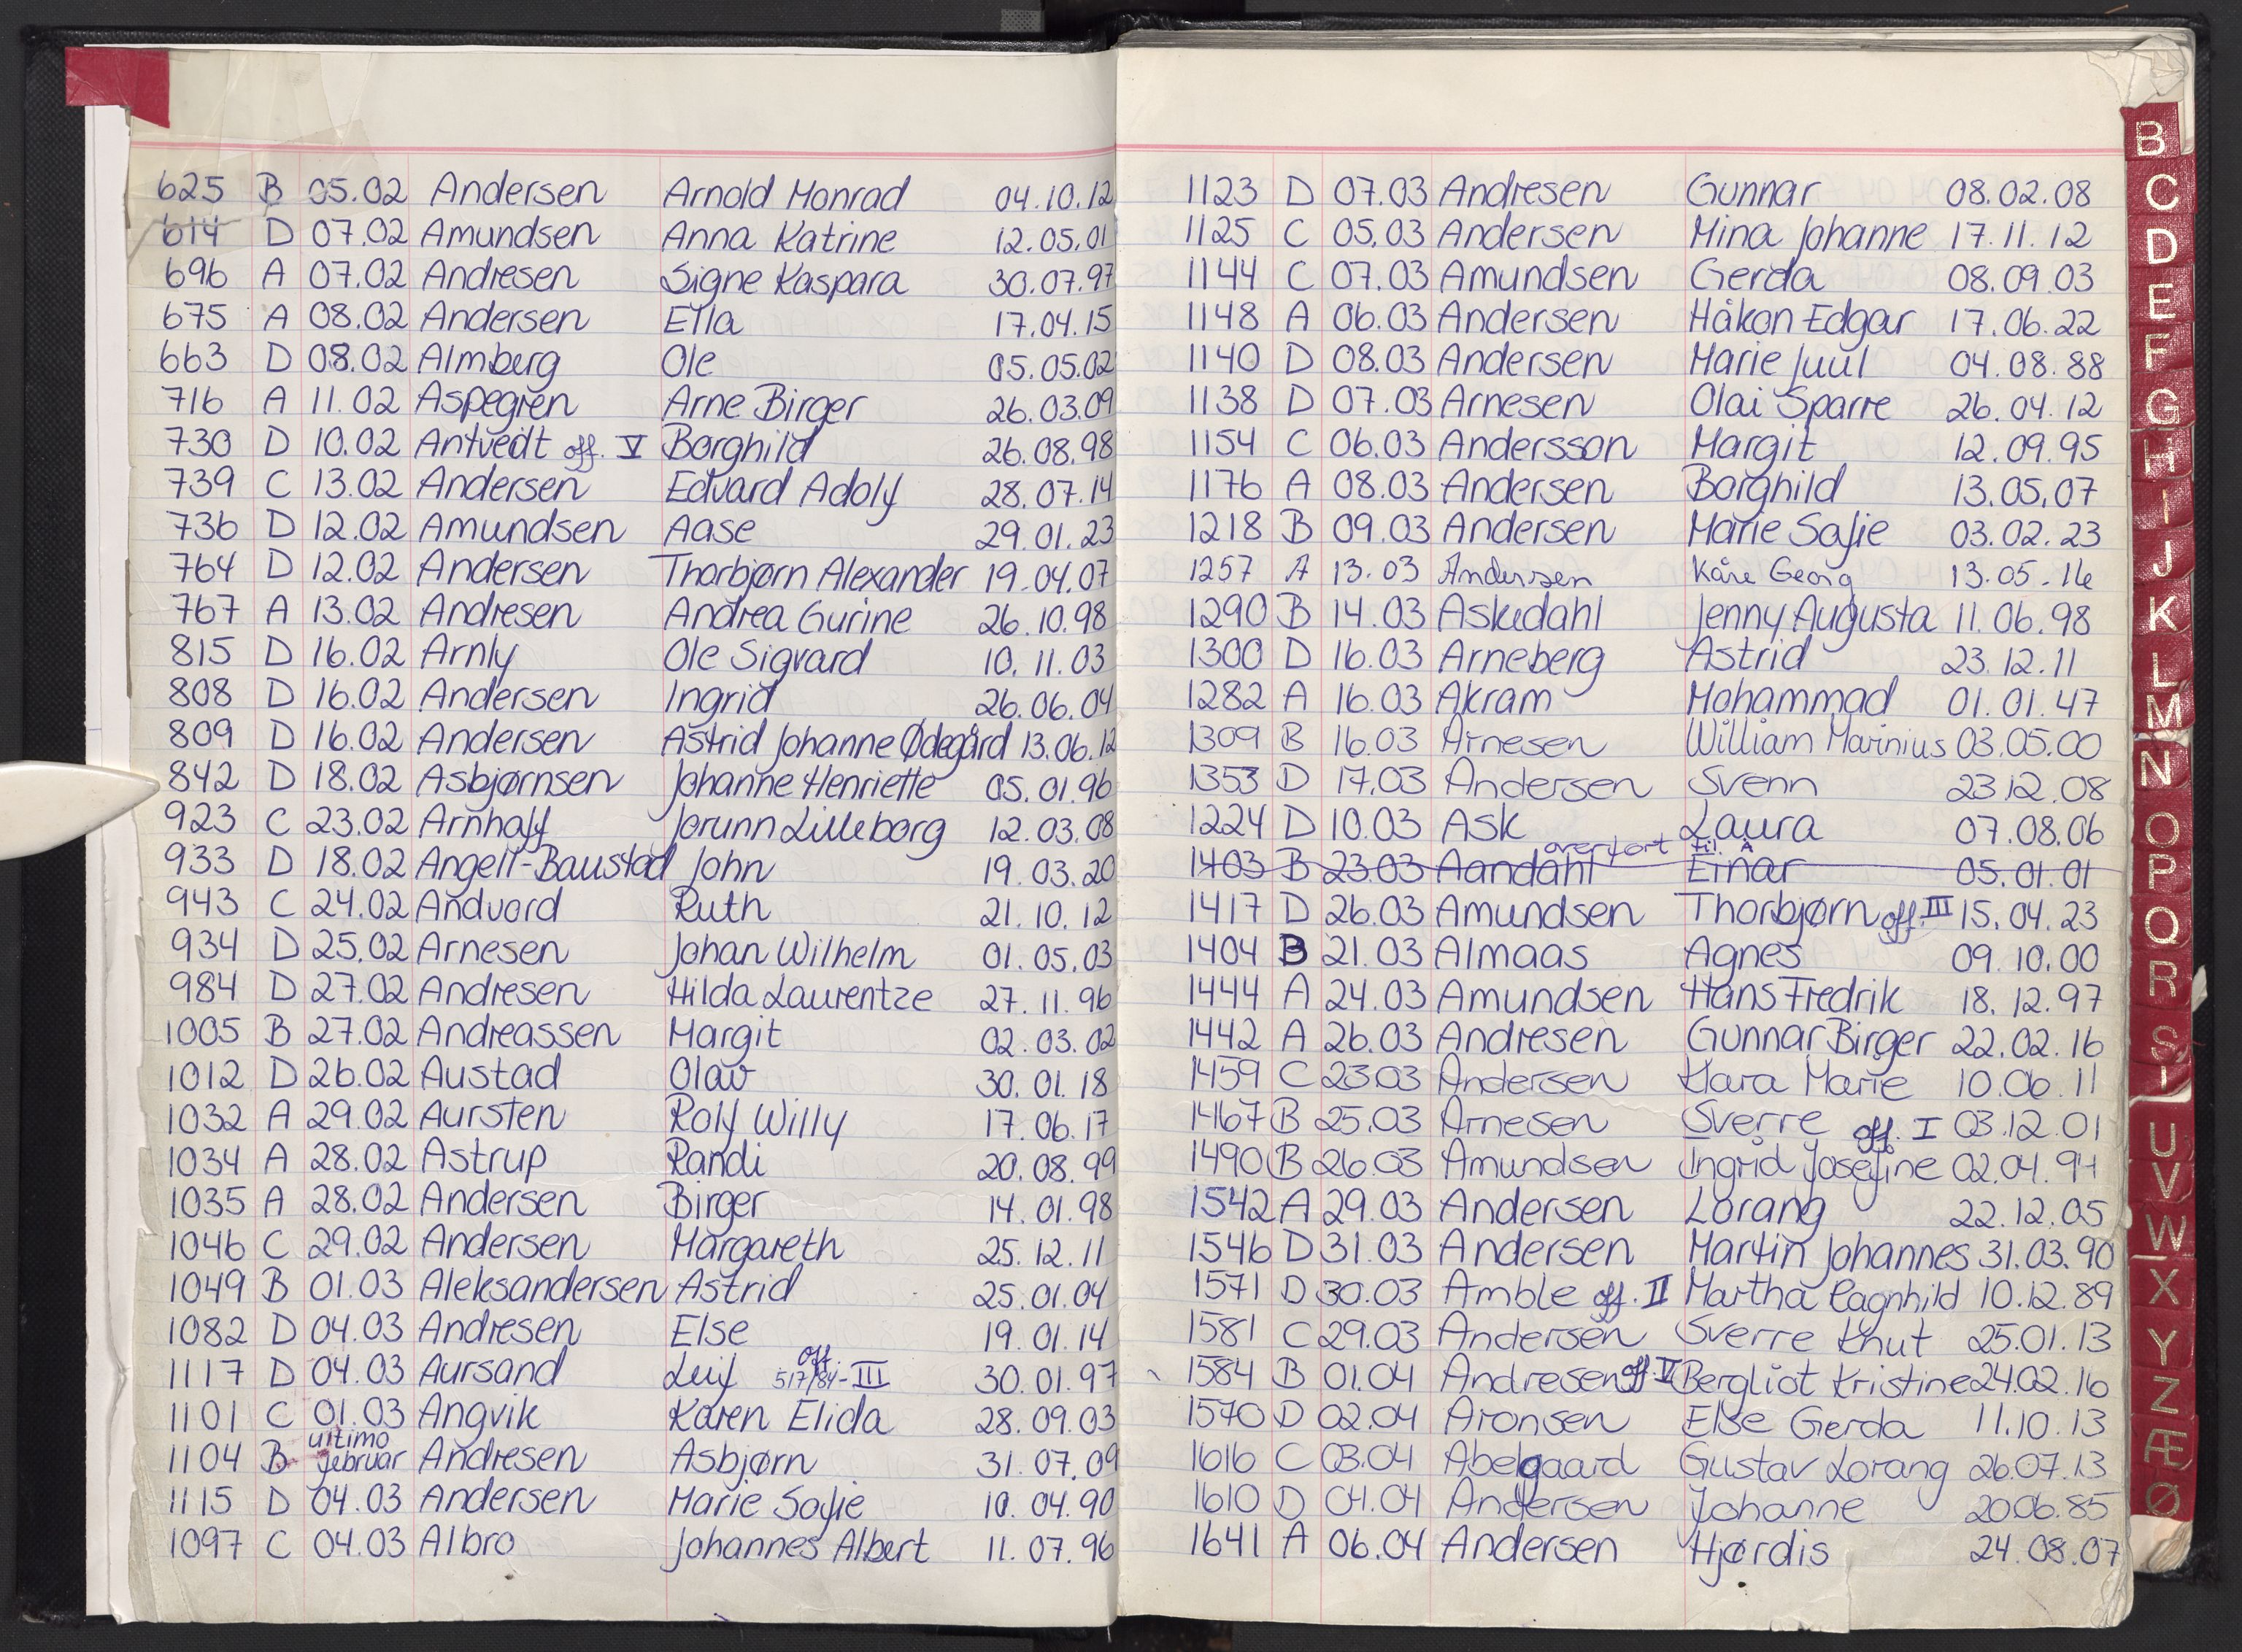 625 B 05.02 Andersen Arnold Monrad 04.10.12
614 D 07.02 Amundsen Anna Katrine 12.05.01
696 A 07.02 Andresen Signe Kaspara 30.07.97
675 A 08.02 Andersen Ella 17.04.15
663 D 08.02 Almberg Ole 05.05.02
716 A 11.02 Aspegren Arne Birger 26.03.09
730 D 10.02 Antvedt off. V Borghild 26.08.98
739 C 13.02 Andersen Edvard Adolf 28.07.14
736 D 12.02 Amundsen Aase 29.01.23
764 D 12.02 Andersen Thorbjørn Alexander 19.04.07
767 A 13.02 Andresen Andrea Gurine 26.10.98
815 D 16.02 Arnly Ole Sigvard 10.11.03
808 D 16.02 Andersen Ingrid 26.06.04
809 D 16.02 Andersen Astrid Johanne Ødegård 13.06.12
842 D 18.02 Asbjørnsen Johanne Henriette 05.01.96
923 C 23.02 Arnhoff Jorunn Lilleborg 12.03.08
933 D 18.02 Angell-Baustad John 19.03.20
943 C 24.02 Andvord Ruth 21.10.12
934 D 25.02 Arnesen Johan Wilhelm 01.05.03
984 D 27.02 Andresen Hilda Laurentze 27.11.96
1005 B 27.02 Andreassen Margit 02.03.02
1012 D 26.02 Austad Olav 30.01.18
1032 A 29.02 Aursten Rolf Willy 17.06.17
1034 A 28.02 Astrup Randi 20.08.99
1035 A 28.02 Andersen Birger 14.01.98
1046 C 29.02 Andersen Margareth 25.12.11
1049 B 01.03 Aleksandersen Astrid 25.01.04
1082 D 04.03 Andresen Else 19.01.14
1117 D 04.03 Aursand Leif off. 517/84-III 30.01.97
1101 C 01.03 Angvik Karen Elida 28.09.03
1104 B ultimo februar Andresen Asbjørn 31.07.09
1115 D 04.03 Andersen Marie Sofie 10.04.90
1097 C 04.03 Albro Johannes Albert 11.07.96
1123 D 07.03 Andresen Gunnar 08.02.08
1125 C 05.03 Andersen Mina Johanne 17.11.12
1144 C 07.03 Amundsen Gerda 08.09.03
1148 A 06.03 Andersen Håkon Edgar 17.06.22
1140 D 08.03 Andersen Marie Juul 04.08.88
1138 D 07.03 Arnesen Olai Sparre 26.04.12
1154 C 06.03 Andersson Margit 12.09.95
1176 A 08.03 Andersen Borghild 13.05.07
1218 B 09.03 Andersen Marie Sofie 03.02.23
1257 A 13.03 Andersen Kåre Georg 13.05.16
1290 B 14.03 Askedahl Jenny Augusta 11.06.98
1300 D 16.03 Arneberg Astrid 23.12.11
1282 A 16.03 Akram Mohammad 01.01.47
1309 B 16.03 Arnesen William Marinius 03.05.00
1353 D 17.03 Andersen Svenn 23.12.08
1224 D 10.03 Ask Laura 07.08.06
overført til Å
1403 B 23.03 Aandahl Einar 05.01.01
1417 D 26.03 Amundsen Thorbjørn off. III 15.04.23
1404 B 21.03 Almaas Agnes 09.10.00
1444 A 24.03 Amundsen Hans Fredrik 18.12.97
1442 A 26.03 Andresen Gunnar Birger 22.02.16
1459 C 23.03 Andersen Klara Marie 10.06.11
1467 B 25.03 Arnesen Sverre off. I 03.12.01
1490 B 26.03 Amundsen Ingrid Josefine 02.04.94
1542 A 29.03 Andersen Lorang 22.12.05
1546 D 31.03 Andersen Martin Johannes 31.03.90
1571 D 30.03 Amble off. II Martha Ragnhild 10.12.89
1581 C 29.03 Andersen Sverre Knut 25.01.13
1584 B 01.04 Andresen off. V Bergliot Kristine 24.02.16
1570 D 02.04 Aronsen Else Gerda 11.10.13
1616 C 03.04 Abelgaard Gustav Lorang 26.07.13
1610 D 04.04 Andersen Johanne 20.06.85
1641 A 06.04 Andersen Hjørdis 24.08.07
B
C
D
E
F
G
H
I
J
K
L
M
N
O
P
Q
R
S
U
V
W
X
Y
Z
Æ
Ø